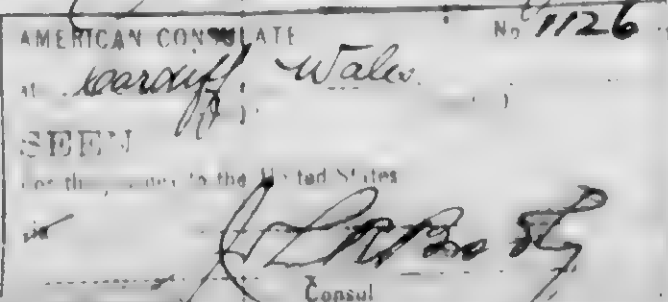 AMERICAN CONSULATE No 1126
at Cardiff, Wales.
SEEN
For the journey to the United States
Consul